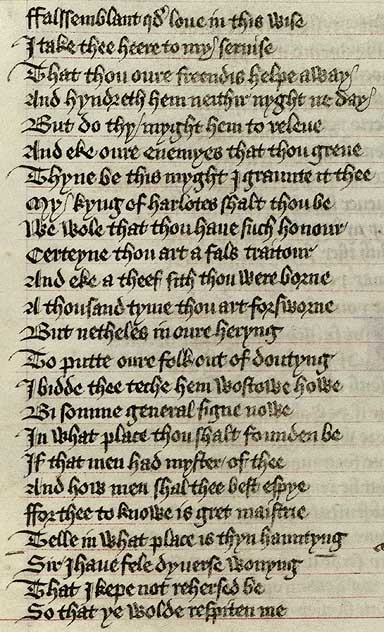 Ffalssemblant qd' loue in this wise
I take thee heere to my seruise
That thou oure freendis helpe away
And hyndreth hem neithir nyght ne day
But do thy myght hem to releue
And eke oure enemyes that thou greue
Thyne be this myght I graunte it thee
My kyng of harlotes shalt thou be
We wole that thou haue such honour
Certeyne thou art a fals traitour
And eke a theef sith thou were borne
A thousand tyme thou art forsworne
But netheles in oure heryng
To putte oure folk out of doutyng
I bidde thee teche hem wostowe howe
Bi somme general signe nowe
In what place thou shalt founden be
If that men had myster of thee
And how men shal thee best espye
Ffor thee to knowe is gret maistrie
Telle in what place is thyn hauntyng
Sir I haue fele dyuerse wonyng
That I kepe not rehersed be
So that ye wolde respiten me